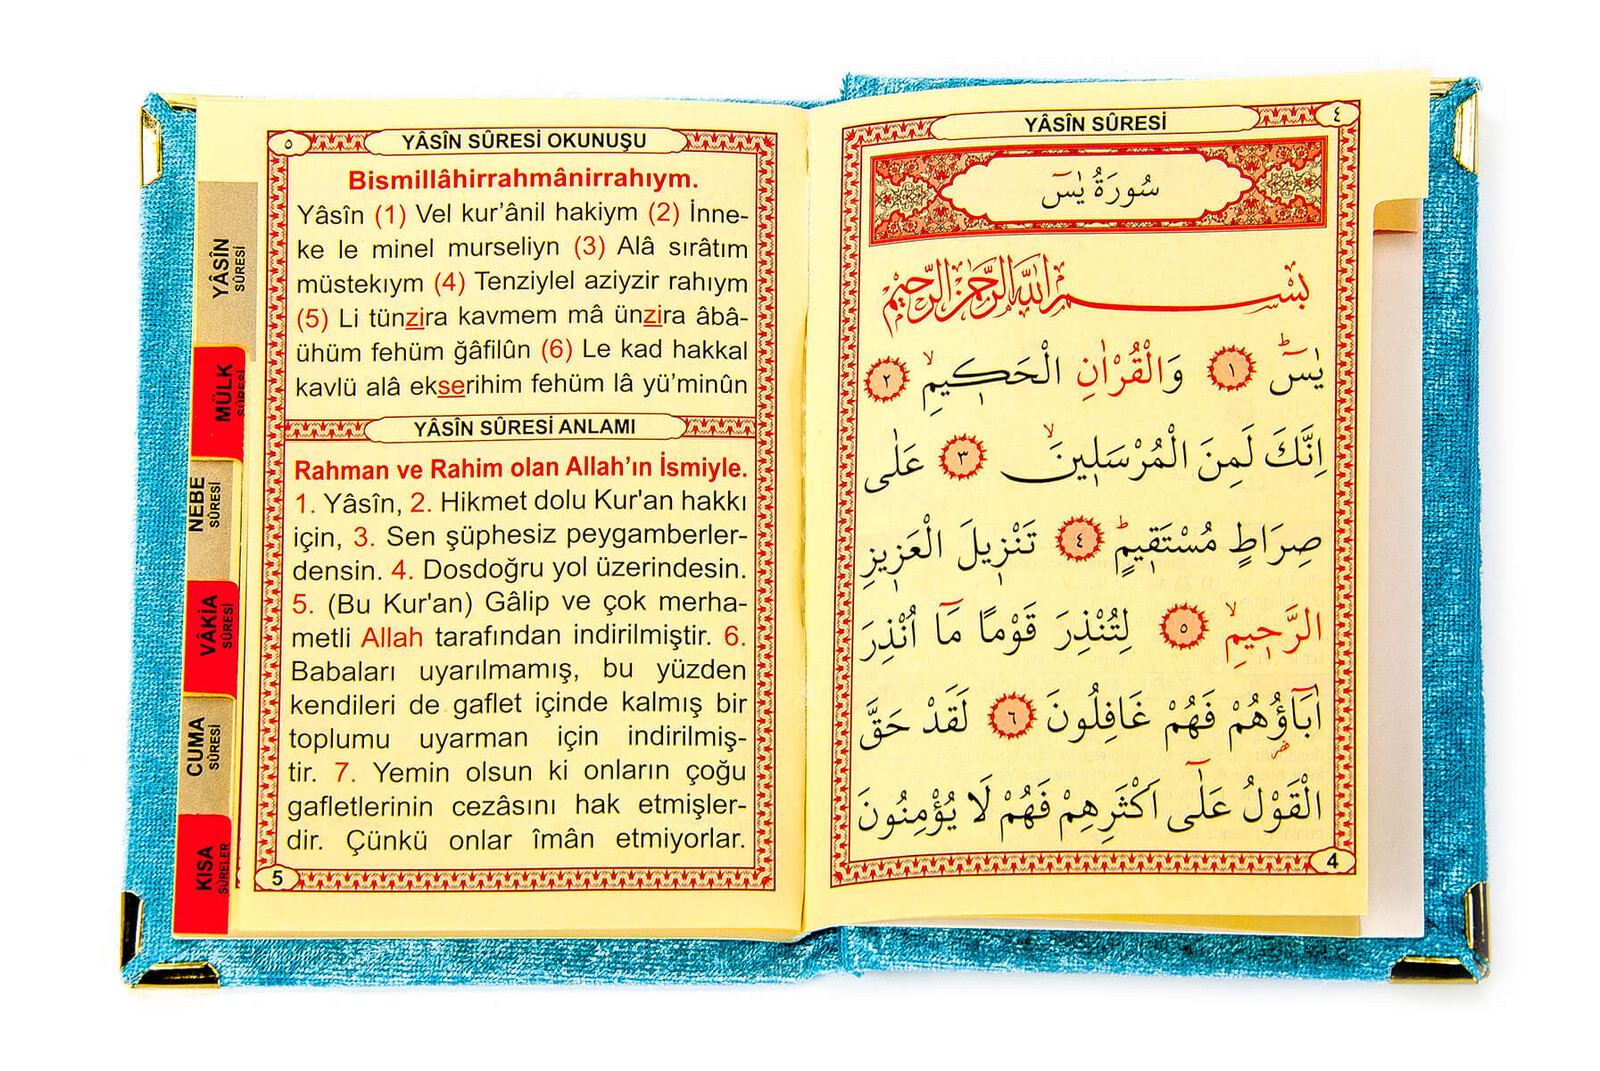 YÂSÎN SÛRESİ
٤
سُورَةُ يٰسٓ
بِسْمِ اللّٰهِ الرَّحْمٰنِ الرَّحٖيمِ
يٰسٓ ﴿١﴾ وَالْقُرْاٰنِ الْحَكٖيمِ ﴿٢﴾
اِنَّكَ لَمِنَ الْمُرْسَلٖينَ ﴿٣﴾ عَلٰى
صِرَاطٍ مُسْتَقٖيمٍ ﴿٤﴾ تَنْزٖيلَ الْعَزٖيزِ
الرَّحٖيمِ ﴿٥﴾ لِتُنْذِرَ قَوْمًا مَٓا اُنْذِرَ
اٰبَٓاؤُ۬هُمْ فَهُمْ غَافِلُونَ ﴿٦﴾ لَقَدْ حَقَّ
الْقَوْلُ عَلٰٓى اَكْثَرِهِمْ فَهُمْ لَا يُؤْمِنُونَ
4
٥
YÂSÎN SÛRESİ OKUNUŞU
Bismillâhirrahmânirrahıym.
Yâsîn (1) Vel kur’ânil hakiym (2) İnne-
ke le minel murseliyn (3) Alâ sırâtım
müstekıym (4) Tenziylel aziyzir rahıym
(5) Li tünzira kavmem mâ ünzira âbâ-
ühüm fehüm ğâfilûn (6) Le kad hakkal
kavlü alâ ekserihim fehüm lâ yü’minûn
YÂSÎN SÛRESİ ANLAMI
Rahman ve Rahim olan Allah’ın İsmiyle.
1. Yâsîn, 2. Hikmet dolu Kur'an hakkı
için, 3. Sen şüphesiz peygamberler-
densin. 4. Dosdoğru yol üzerindesin.
5. (Bu Kur'an) Gâlip ve çok merha-
metli Allah tarafından indirilmiştir. 6.
Babaları uyarılmamış, bu yüzden
kendileri de gaflet içinde kalmış bir
toplumu uyarman için indirilmiş-
tir. 7. Yemin olsun ki onların çoğu
gafletlerinin cezâsını hak etmişler-
dir. Çünkü onlar îmân etmiyorlar.
5
YÂSÎN
SÛRESİ
MÜLK
SÛRESİ
NEBE
SÛRESİ
VÂKİA
SÛRESİ
CUMA
SÛRESİ
KISA
SÛRELER